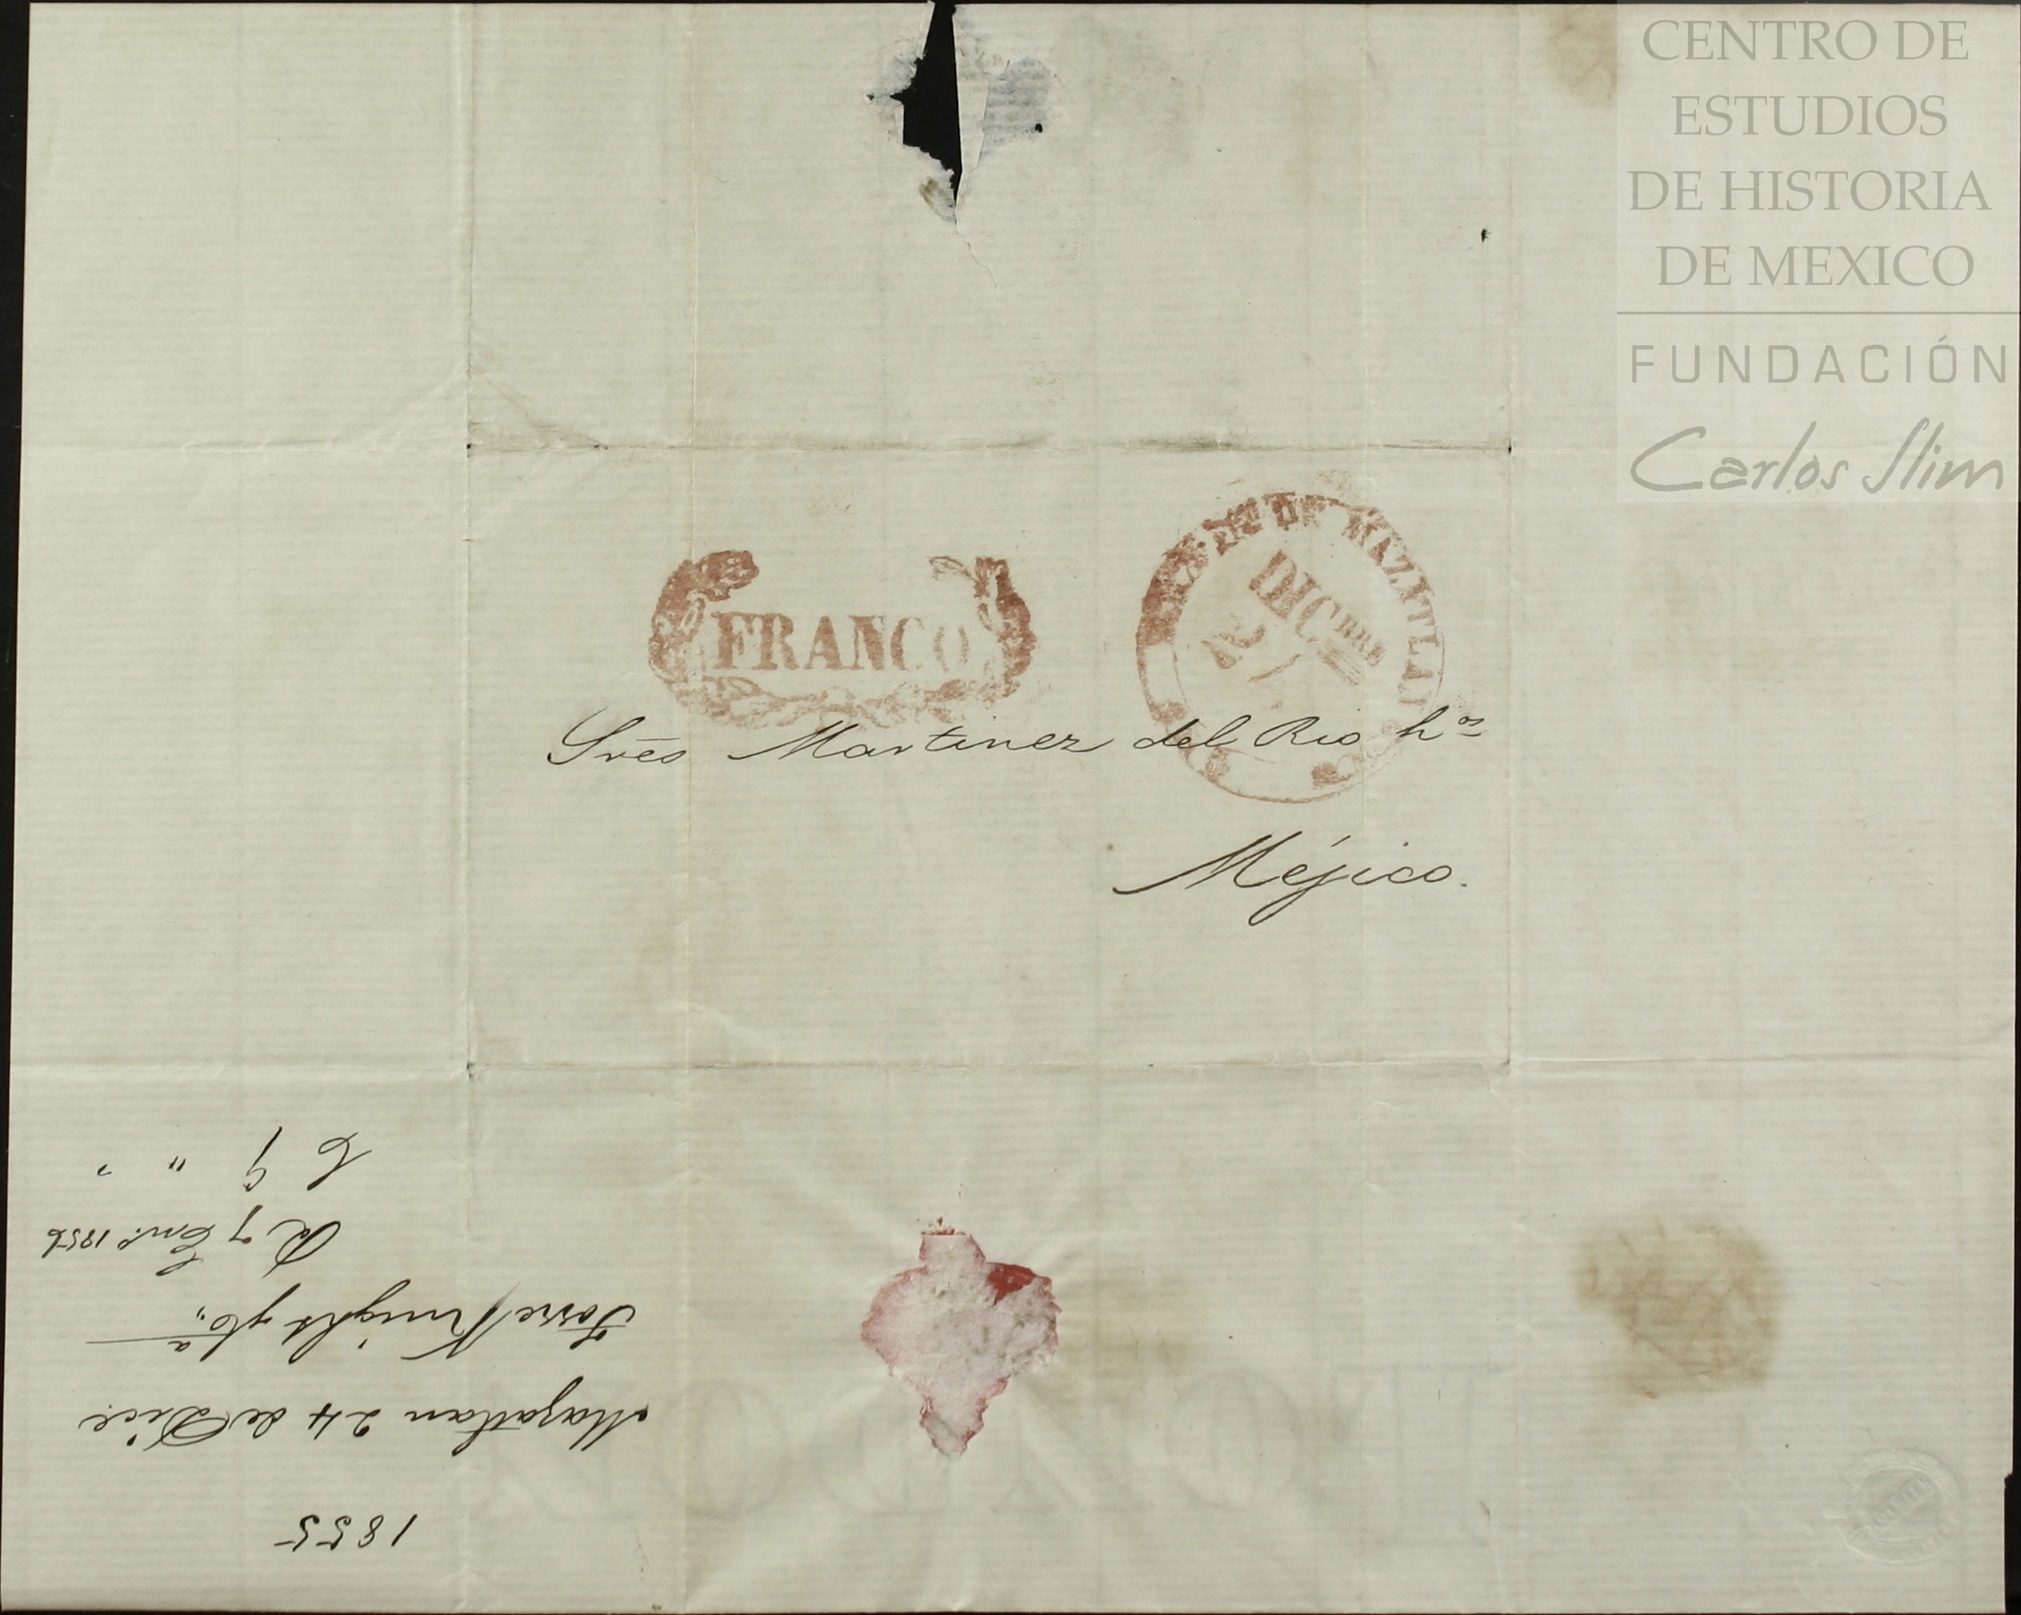 CENTRO DE
ESTUDIOS
DE HISTORIA
DE MEXICO
FUNDACIÓN
Carlos Slim
FRANCO
DE MAZATLAN
DICBRE
Sres Martinez del Rio hos
Méjico.
1855
Mazatlan 24 de Dice
Torre Knight y Ca
Rda 7 En. 1856
C 9 " "